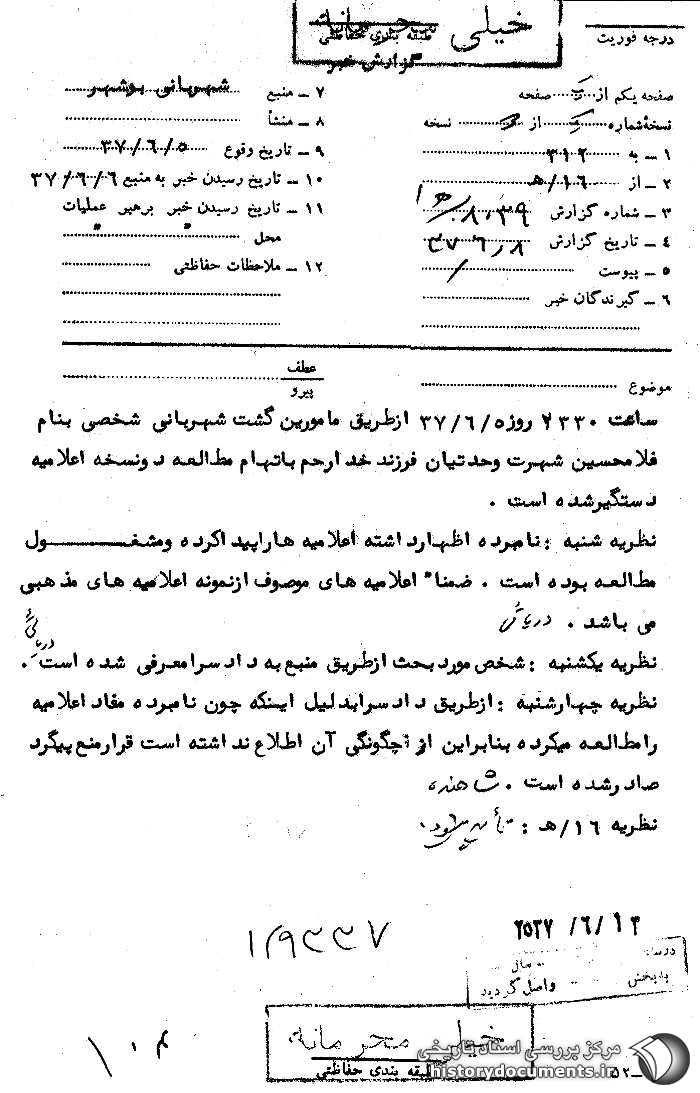 خیلی محرمانه
طبقه بندی حفاظتی
درجه فوریت
گزارش خبر
صفحه یکم از صفحه
نسخه شماره از نسخه
۱ - به ۳۱۲
۲ - از ۱۶/هـ
۳ - شماره گزارش ۸۰۳۹/هـ ۱
۴ - تاریخ گزارش ۳۷/۶/۸
۵ - پیوست
۶ - گیرندگان خبر
۷ - منبع شهربانی بوشهر
۸ - منشأ
۹ - تاریخ وقوع ۳۷/۶/۵
۱۰ - تاریخ رسیدن خبر به منبع ۳۷/۶/۶
۱۱ - تاریخ رسیدن خبر برهبر عملیات
محل
۱۲ - ملاحظات حفاظتی
موضوع
عطف
پیرو
ساعت ۲۳۳۰ روز ۳۷/۶/۵ ازطریق مامورین گشت شهربانی شخصی بنام
غلامحسین شهرت وحدتیان فرزند خدارحم باتهام مطالعه دونسخه اعلامیه
دستگیرشده است .
نظریه شنبه : نامبرده اظهارداشته اعلامیه هاراپیداکرده ومشغـــول
مطالعه بوده است . ضمناً اعلامیه های موصوف ازنمونه اعلامیه های مذهبی
می باشد .
نظریه یکشنبه : شخص موردبحث ازطریق منبع به دادسرامعرفی شده است .
نظریه چهارشنبه : ازطریق دادسرابدلیل اینکه چون نامبرده مفاد اعلامیه
رامطالعه میکرده بنابراین از چگونگی آن اطلاع نداشته است قرارمنع پیگرد
صادرشده است .
نظریه ۱۶/هـ : تأیید میشود .
۲۵۳۷/۶/۱۴
۱۰۴
واصل گردید
خیلی محرمانه
طبقه بندی حفاظتی
مرکز بررسی اسناد تاریخی
historydocuments.ir